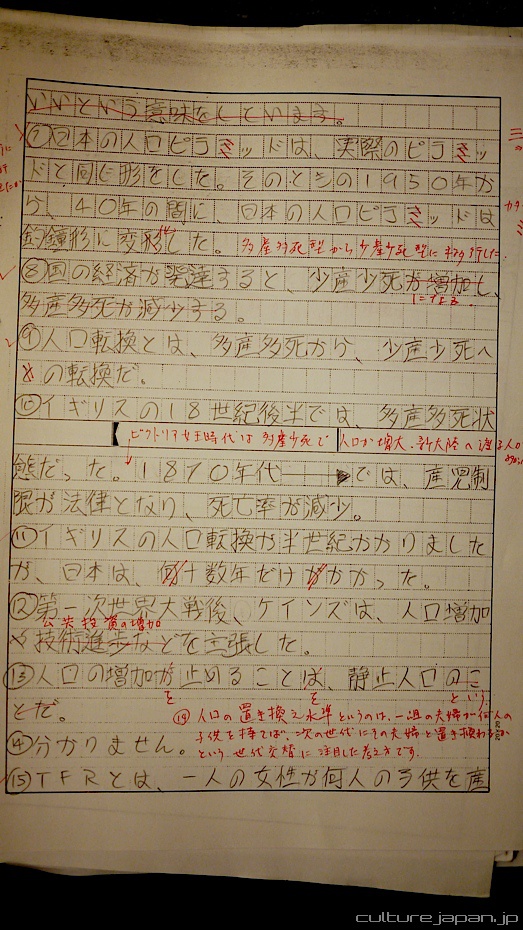 いいという意味をしています。
⑦日本の人口ピラミッドは、実際のピラミッ
ドと同じ形をした。そのときの1950年か
ら、40年の間に、日本の人口ピラミッドは
釣鐘形に変形した。多産多死型から少産少死型に移行した。
⑧国の経済が発達すると、少産少死が増加し、
になる。
多産多死が減少する。
⑨人口転換とは、多産多死から、少産少死へ
の転換だ。
⑩イギリスの18世紀後半では、多産多死状
ビクトリア女王時代は多産少死で 人口が増大、新大陸へ渡る人口
態だった。1870年代 では、産児制
限が法律となり、死亡率が減少。
⑪イギリスの人口転換が半世紀かかりました
が、日本は、何十数年だけがかかった。
⑫第一次世界大戦後、ケインズは、人口増加
公共投資の増加
や技術進歩などを主張した。
⑬人口の増加が止めることは、静止人口のこ
を を という
とだ。
⑭人口の置き換え水準というのは、一組の夫婦が何人の
子供を持てば、次の世代にその夫婦と置き換わるか
という世代交替に注目した考え方です。
⑭分かりません。
⑮TFRとは、一人の女性が何人の子供を産
culturejapan.jp